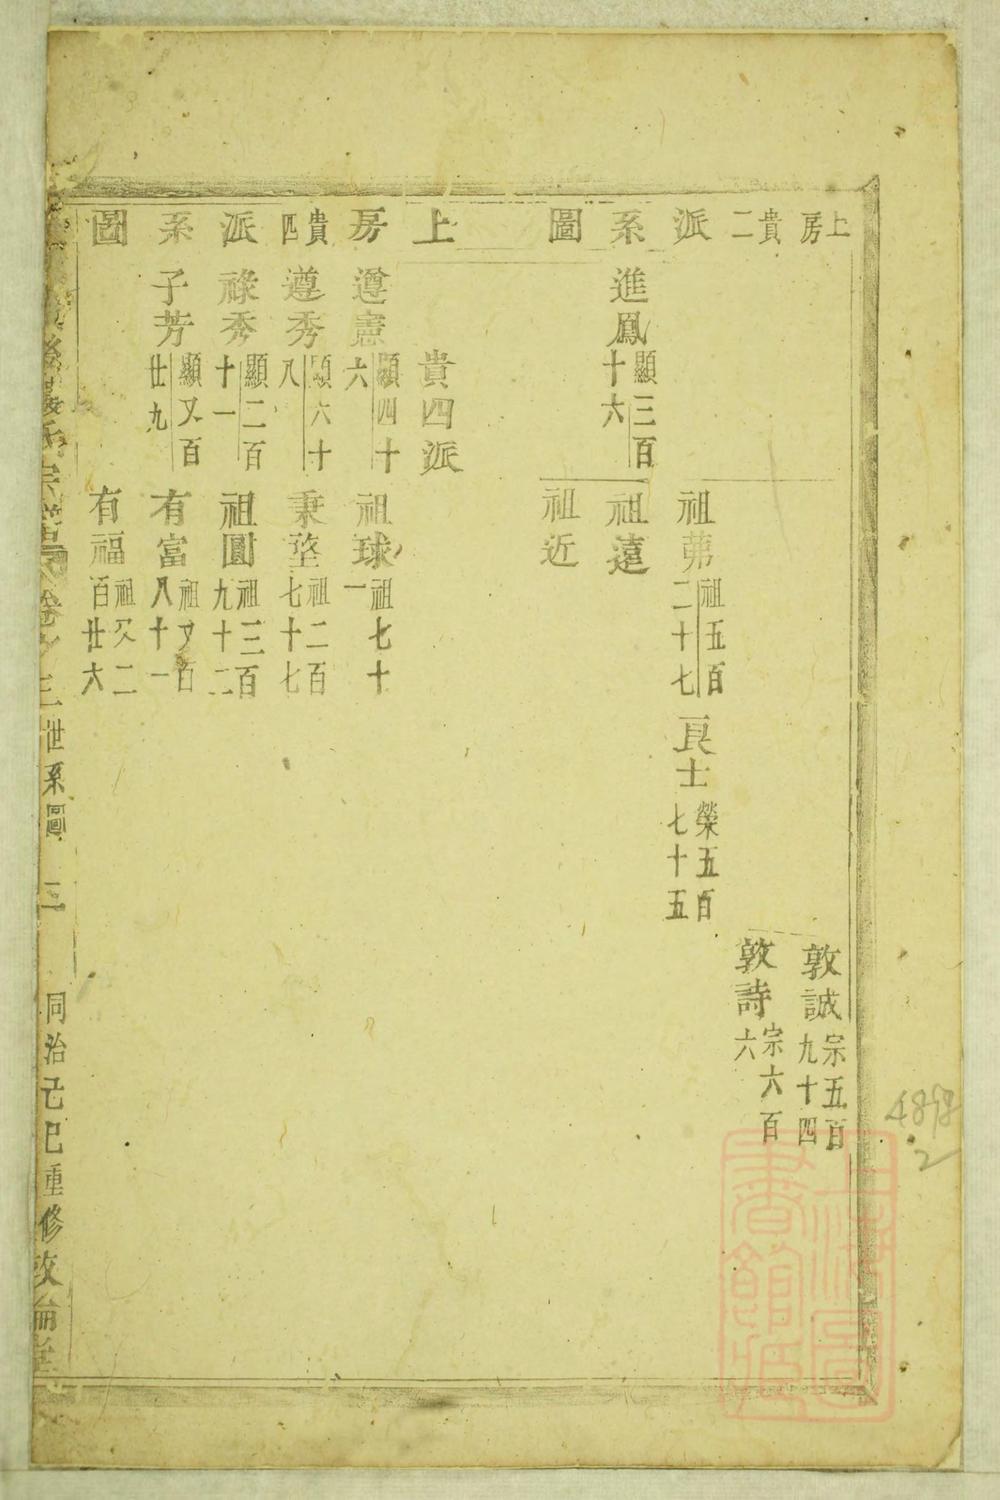 上房貴二派系圖
進鳳 顯三百十六
祖茀 祖五百二十七
祖遠
祖近
良士 榮五百七十五
敦誠 宗五百九十四
敦詩 宗六百六
上房貴四派系圖
貴四派
遵憲 顯四十六
遵秀 顯六十八
祿秀 顯二百十一
子芳 顯又百廿九
祖球 祖七十一
秉堃 祖二百七十七
祖圓 祖三百九十二
有富 祖又百八十一
有福 祖又二百廿六
氏宗譜 卷之三 世系圖 三 同治己巳重修 敦倫堂
上海圖書館藏
48982